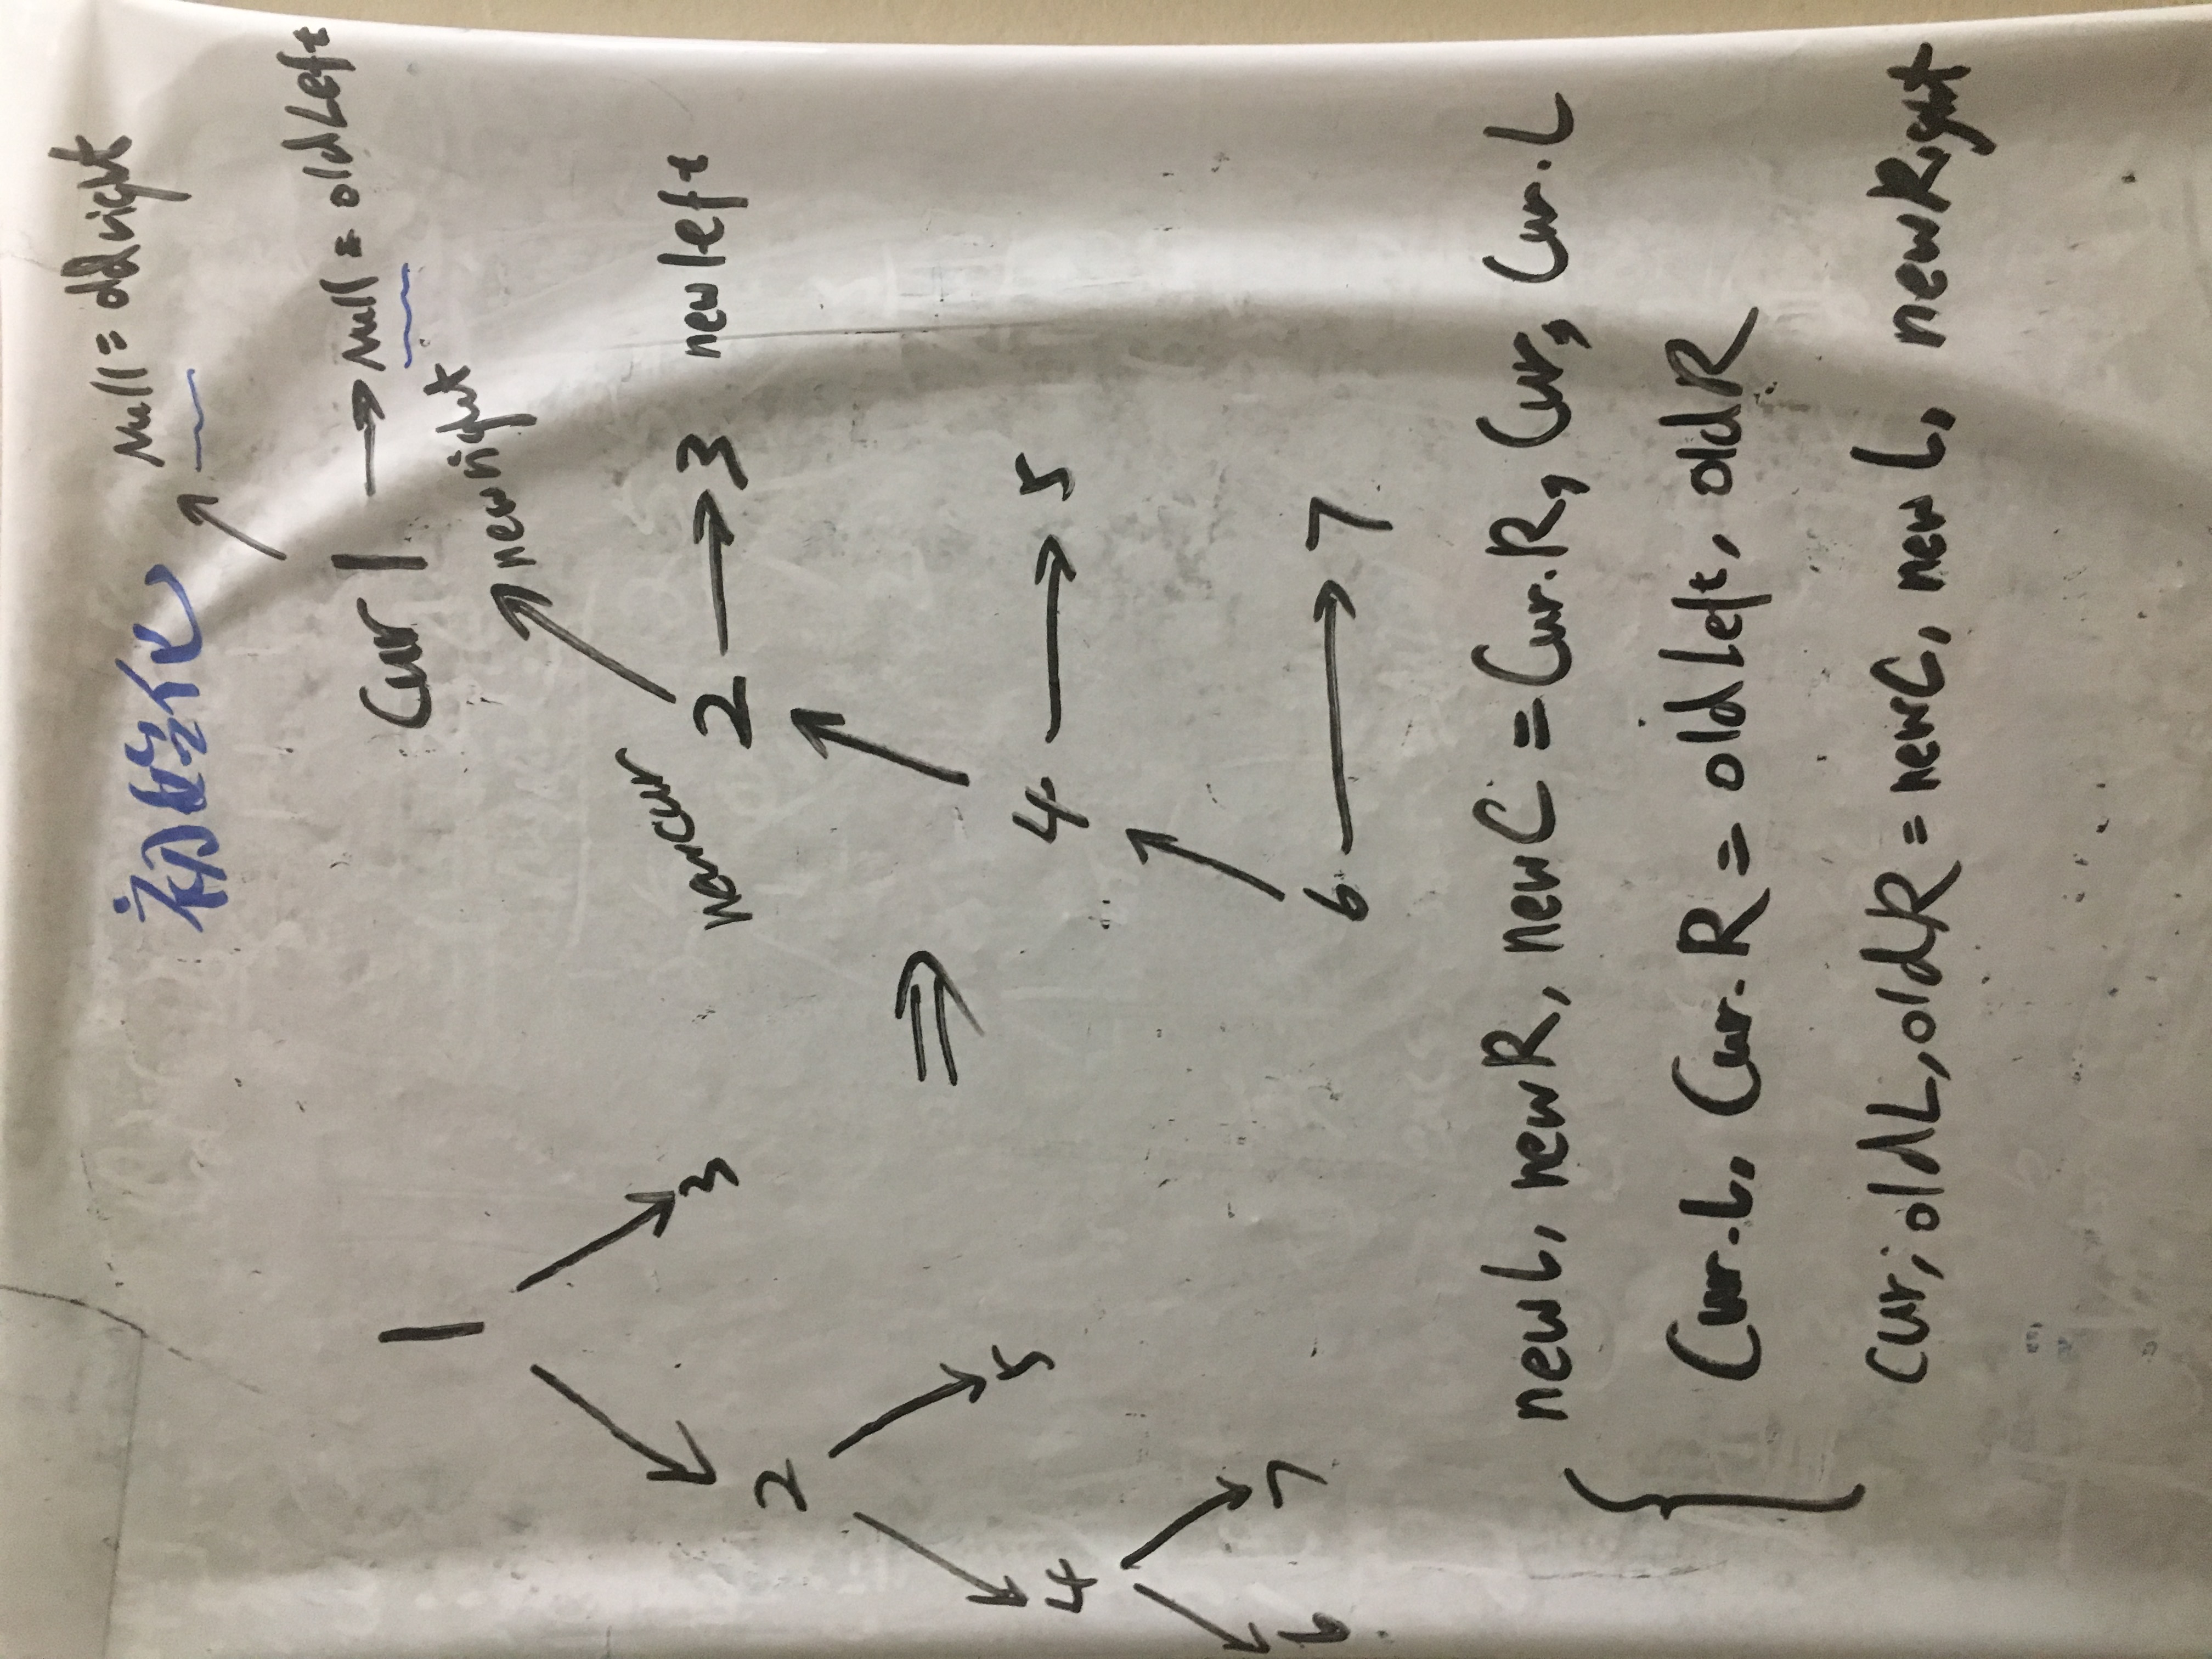 初始化
null = oldright
Cur 1 → null = oldLeft
newright
1
newcur
2 → 3 newleft
2 3
⇒
4 5
4 → 5
6 7
6 → 7
newL, newR, newC = Cur.R, Cur, Cur.L
Cur.L, Cur.R = oldleft, oldR
cur, oldL, oldR = newC, newL, newRight